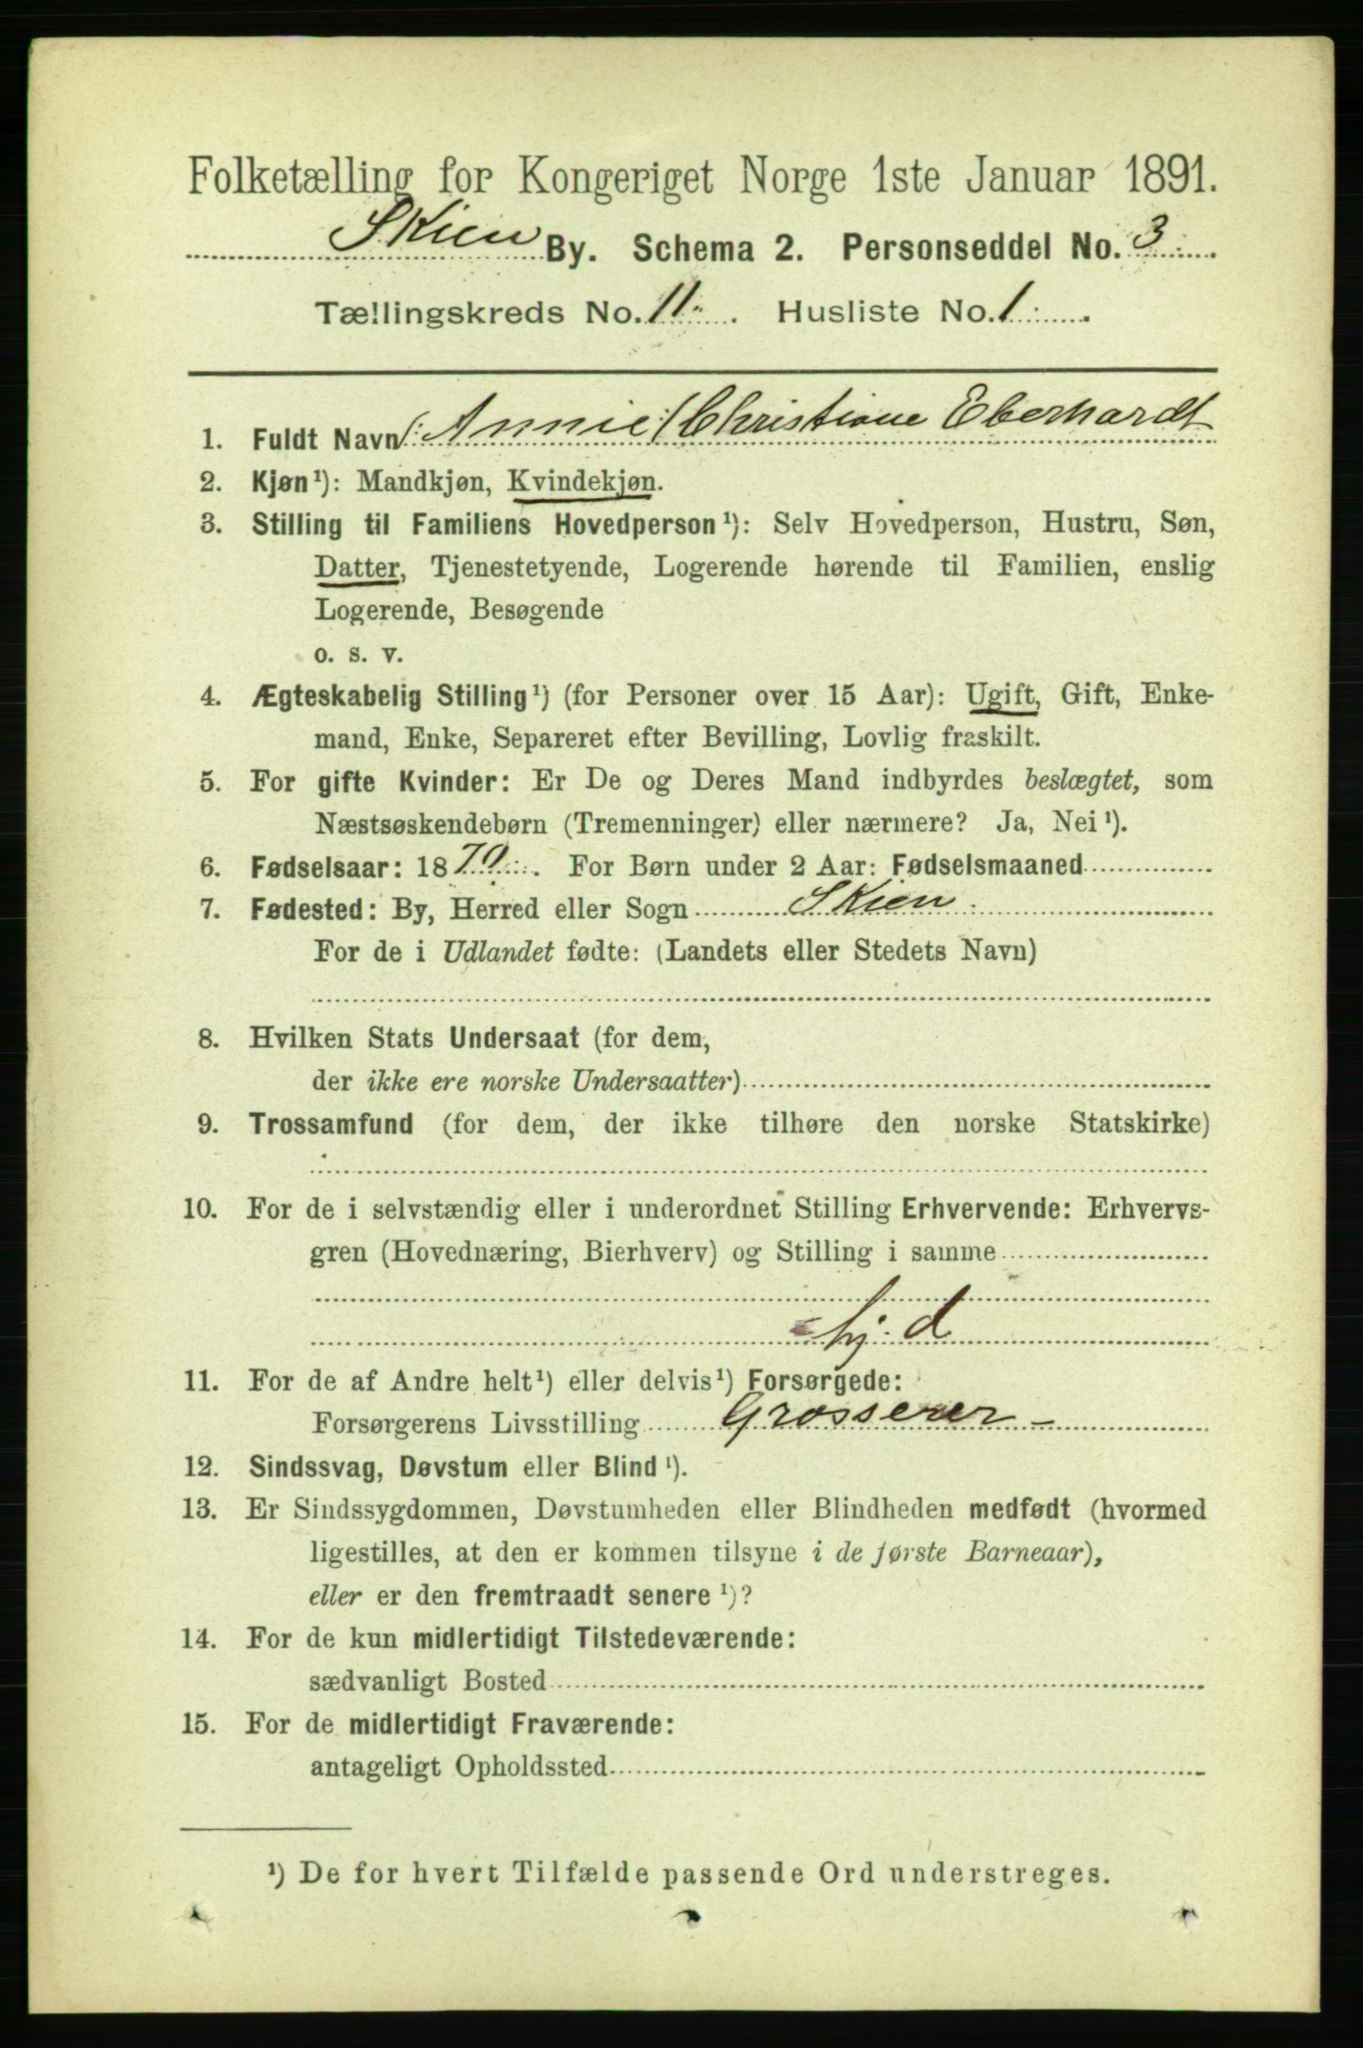 Folketælling for Kongeriget Norge 1ste Januar 1891.
Skien By. Schema 2. Personseddel No. 3
Tællingskreds No. 11. Husliste No. 1
1. Fuldt Navn /: Annie :/ Christiane Eberhardt
2. Kjøn¹): Mandkjøn, Kvindekjøn.
3. Stilling til Familiens Hovedperson¹): Selv Hovedperson, Hustru, Søn,
Datter, Tjenestetyende, Logerende hørende til Familien, enslig
Logerende, Besøgende
o. s. v.
4. Ægteskabelig Stilling¹) (for Personer over 15 Aar): Ugift, Gift, Enke-
mand, Enke, Separeret efter Bevilling, Lovlig fraskilt.
5. For gifte Kvinder: Er De og Deres Mand indbyrdes beslægtet, som
Næstsøskendebørn (Tremenninger) eller nærmere? Ja, Nei¹).
6. Fødselsaar: 1870. For Børn under 2 Aar: Fødselsmaaned
7. Fødested: By, Herred eller Sogn Skien
For de i Udlandet fødte: (Landets eller Stedets Navn)
8. Hvilken Stats Undersaat (for dem,
der ikke ere norske Undersaatter)
9. Trossamfund (for dem, der ikke tilhøre den norske Statskirke)
10. For de i selvstændig eller i underordnet Stilling Erhvervende: Erhvervs-
gren (Hovednæring, Bierhverv) og Stilling i samme
hj. d
11. For de af Andre helt¹) eller delvis¹) Forsørgede:
Forsørgerens Livsstilling Grosserer -
12. Sindssvag, Døvstum eller Blind¹).
13. Er Sindssygdommen, Døvstumheden eller Blindheden medfødt (hvormed
ligestilles, at den er kommen tilsyne i de første Barneaar),
eller er den fremtraadt senere¹)?
14. For de kun midlertidigt Tilstedeværende:
sædvanligt Bosted
15. For de midlertidigt Fraværende:
antageligt Opholdssted
¹) De for hvert Tilfælde passende Ord understreges.